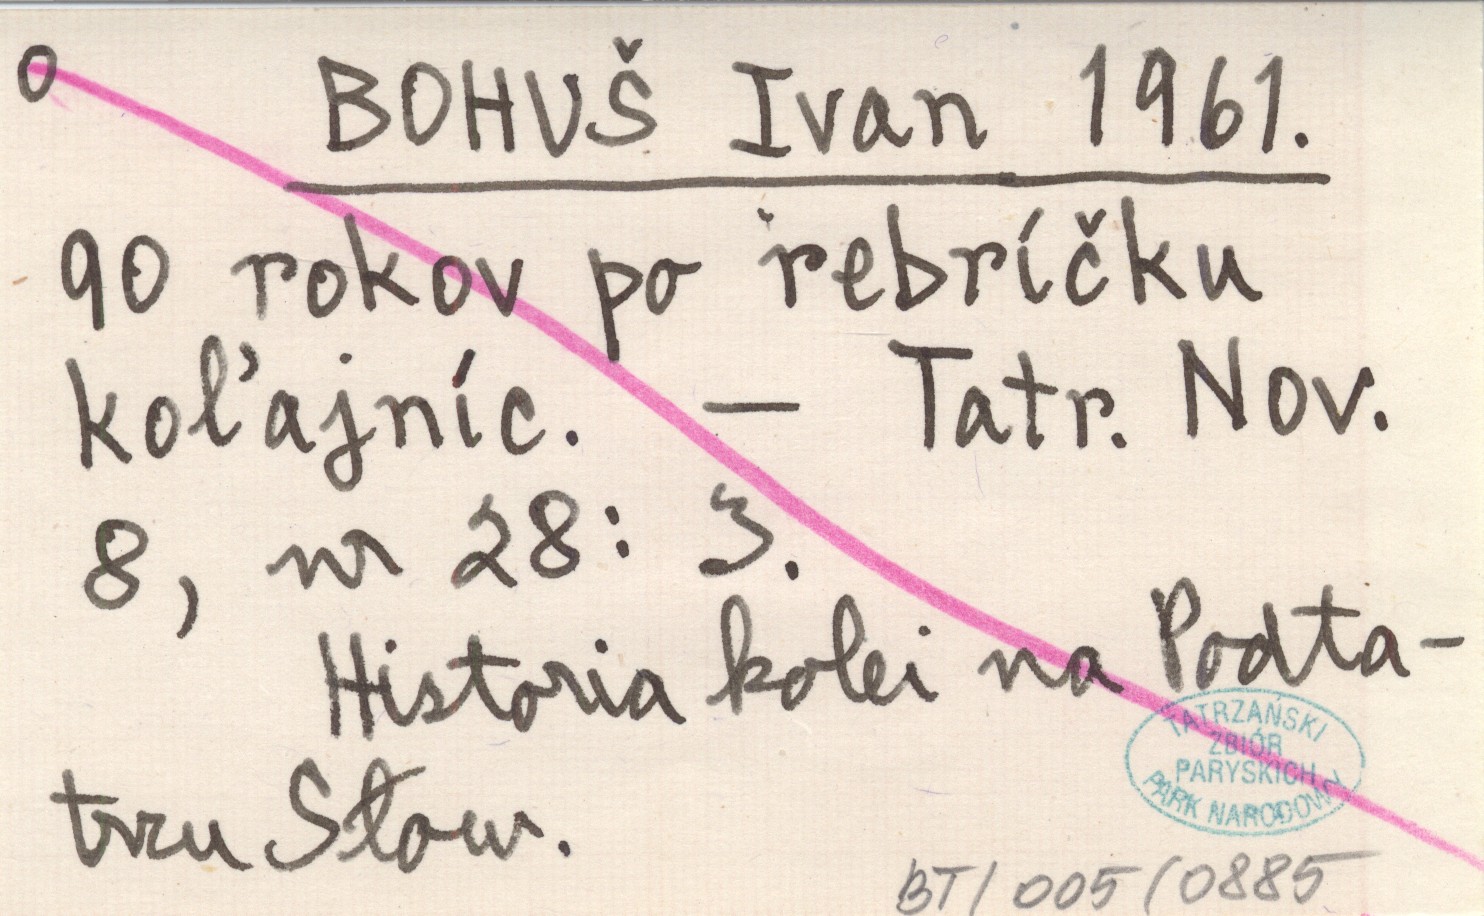 o BOHUŠ Ivan 1961.
90 rokov po rebríčku
koľajníc. — Tatr. Nov.
8, nr 28: 3.
Historia kolei na Podta-
trzu Słow.
TATRZAŃSKI
ZBIÓR
PARYSKICH
PARK NARODOWY
BT/005/0885